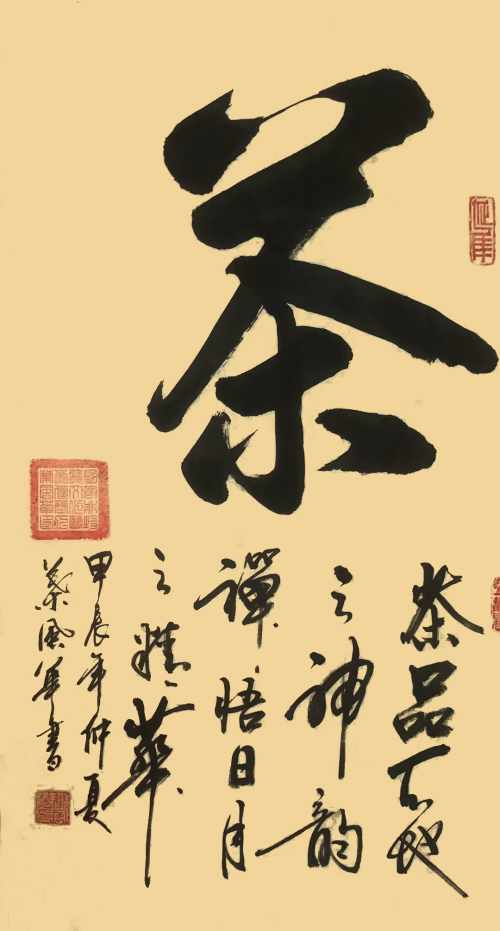 茶
茶品天地
之神韵
禪悟日月
之精華
甲辰年仲夏
風 書